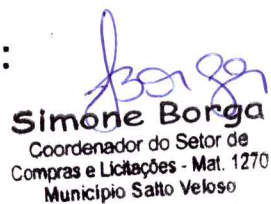 :
Simone Borga
Coordenador do Setor de
Compras e Licitações - Mat. 1270
Município Salto Veloso